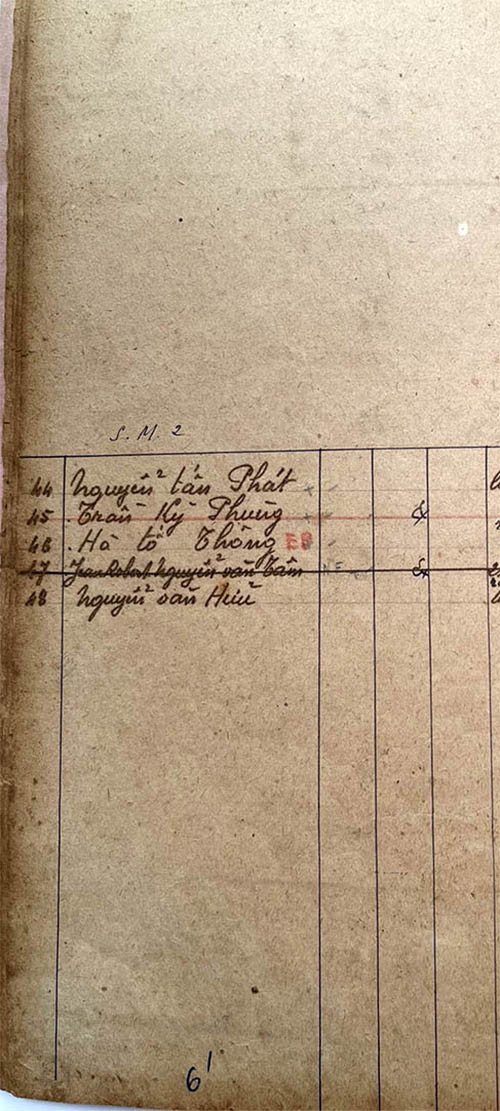 S. M. 2
44 Nguyễn tấn Phát
45 . Trần Kỳ Phùng
46 . Hà tố Thông EB
47 Jean Robert Nguyễn văn Tâm NE
48 Nguyễn văn Hữu
6'